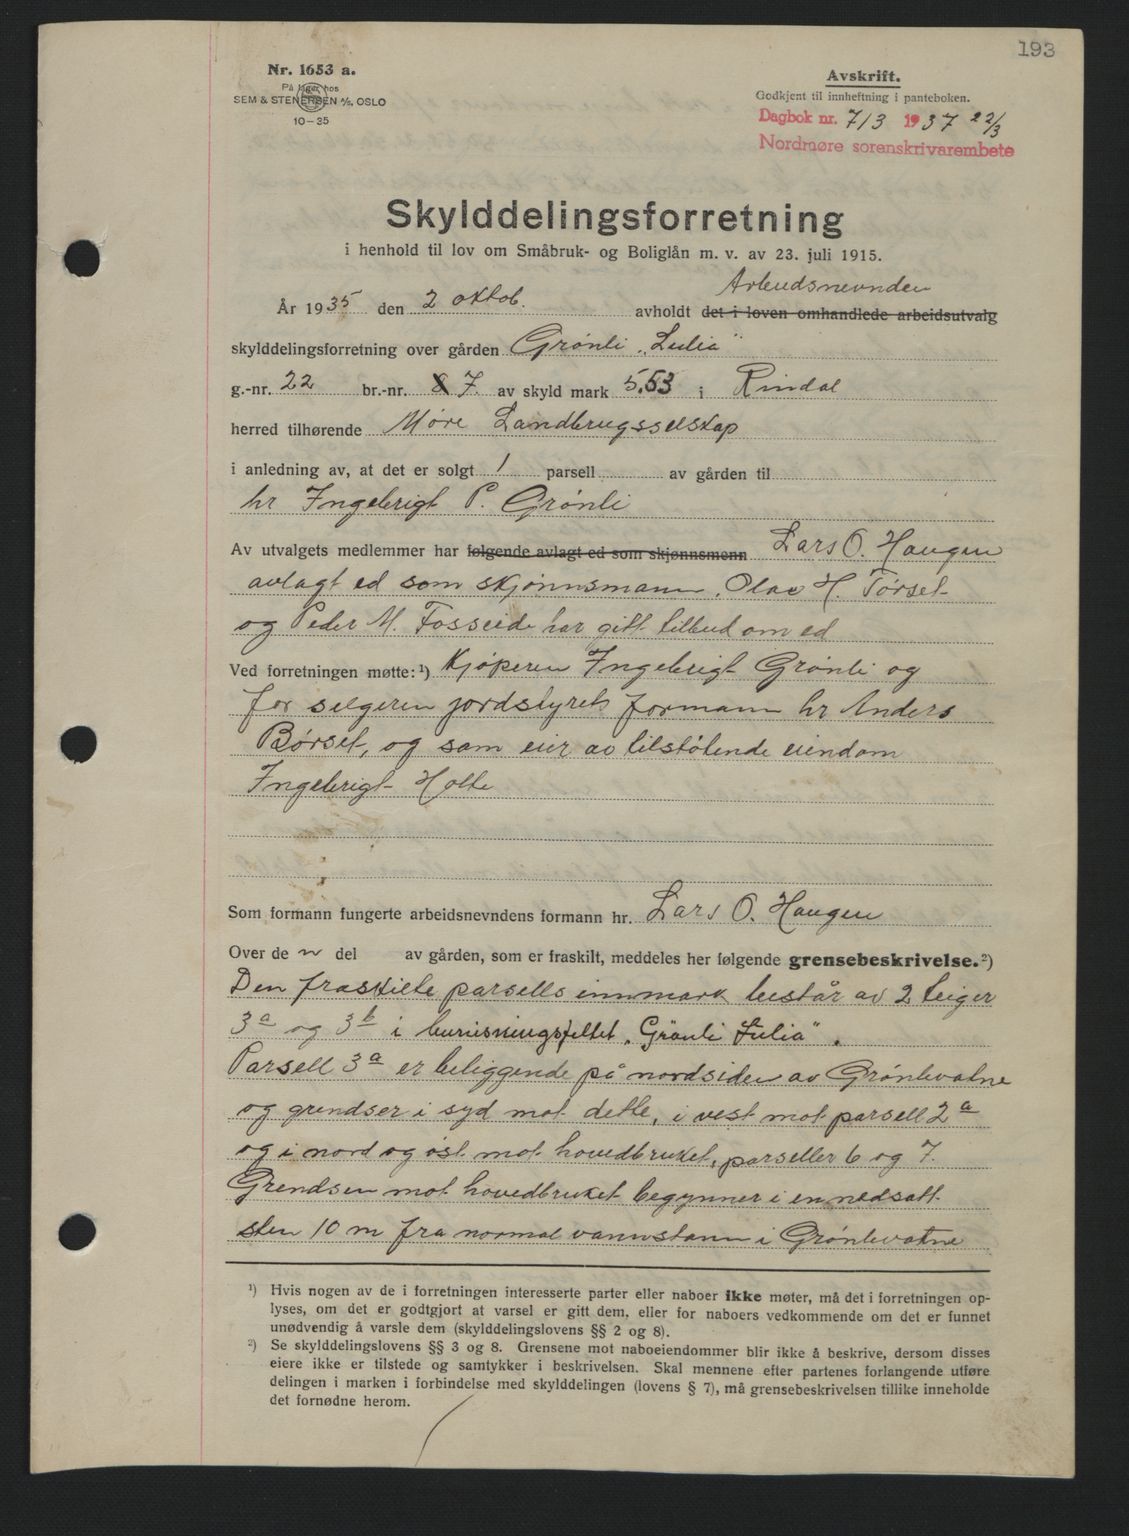 193
Nr. 1653 a.
På lager hos
SEM & STENERSEN A/S, OSLO
10-35
Avskrift.
Godkjent til innheftning i panteboken.
Dagbok nr. 713 1937 22/3
Nordmøre sorenskrivarembete
Skylddelingsforretning
i henhold til lov om Småbruk- og Boliglån m. v. av 23. juli 1915.
Arbeidsnevnden
År 1935 den 2 oktob. avholdt det i loven omhandlede arbeidsutvalg
skylddelingsforretning over gården Grønli „Lulia"
g.-nr. 22 br.-nr. 8 7. av skyld mark 5.53 i Rindal
herred tilhørende Møre Landbrugsselskap
i anledning av, at det er solgt 1 parsell av gården til
hr Ingebrigt P. Grønli
Av utvalgets medlemmer har følgende avlagt ed som skjønnsmenn Lars O. Haugen
avlagt ed som skjønnsmann. Olav H. Tørset
og Peder M. Fosseide har gitt tilbud om ed
Ved forretningen møtte: ¹) Kjøperen Ingebrigt Grønli og
for selgeren jordstyrets formann hr Anders
Børset, og som eier av tilstøtende eiendom
Ingebrigt Holte
Som formann fungerte arbeidsnevndens formann hr. Lars O. Haugen
Over de n del av gården, som er fraskilt, meddeles her følgende grensebeskrivelse.²)
Den fraskilte parsells innmark består av 2 teiger
3a og 3b i bureisningsfeltet „Grönli Lulia".
Parsell 3a er beliggende på nordsiden av Grønlivatne
og grendser i syd mot dette, i vest mot parsell 2a
og i nord og øst mot hovedbruket, parseller 6 og 7.
Grendsen mot hovedbruket begynner i en nedsatt
sten 10 m fra normal vannstann i Grønlivatne
¹) Hvis nogen av de i forretningen interesserte parter eller naboer ikke møter, må det i forretningen op-
lyses, om det er godtgjort at varsel er gitt dem, eller for naboers vedkommende om det er funnet
unødvendig å varsle dem (skylddelingslovens §§ 2 og 8).
²) Se skylddelingslovens §§ 3 og 8. Grensene mot naboeiendommer blir ikke å beskrive, dersom disses
eiere ikke er tilstede og samtykker i beskrivelsen. Skal mennene efter partenes forlangende utføre
delingen i marken i forbindelse med skylddelingen (lovens § 7), må grensebeskrivelsen tillike inneholde
det fornødne herom.